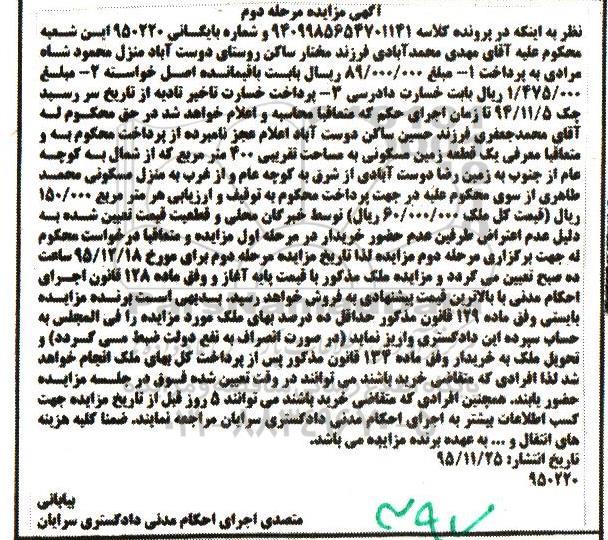 آگهی مزایده مرحله دوم
نظر به اینکه در پرونده کلاسه ۹۴۰۹۹۸۵۶۵۴۷۰۱۱۴۱ و شماره بایگانی ۹۵۰۲۲۰ این شعبه
محکوم علیه آقای مهدی محمدآبادی فرزند مختار ساکن روستای دوست آباد منزل محمود شاه
مرادی به پرداخت ۱- مبلغ ۸۹/۰۰۰/۰۰۰ ریال بابت باقیمانده اصل خواسته ۲- مبلغ
۱/۴۷۵/۰۰۰ ریال بابت خسارت دادرسی ۳- پرداخت خسارت تاخیر تادیه از تاریخ سر رسید
چک ۹۴/۱۱/۵ تا زمان اجرای حکم که متعاقبا محاسبه و اعلام خواهد شد در حق محکوم له
آقای محمدجعفری فرزند حسین ساکن دوست آباد اعلام عجز نامبرده از پرداخت محکوم به و
متعاقبا معرفی یک قطعه زمین مسکونی به مساحت تقریبی ۴۰۰ متر مربع که از شمال به کوچه
عام از جنوب به زمین رضا دوست آبادی از شرق به کوچه عام و از غرب به منزل مسکونی محمد
طاهری از سوی محکوم علیه در جهت پرداخت محکوم به توقیف و ارزیابی هر متر مربع ۱۵۰/۰۰۰
ریال (قیمت کل ملک ۶۰/۰۰۰/۰۰۰ ریال) توسط خبرگان محلی و قطعیت قیمت تعیین شده به
دلیل عدم اعتراض طرفین عدم حضور خریدار در مرحله اول مزایده و متعاقبا درخواست محکوم
له جهت برگزاری مرحله دوم مزایده لذا تاریخ مزایده مرحله دوم برای مورخ ۹۵/۱۲/۱۸ ساعت
ده صبح تعیین می گردد و مزایده ملک مذکور با قیمت پایه آغاز و وفق ماده ۱۲۸ قانون اجرای
احکام مدنی با بالاترین قیمت پیشنهادی به فروش خواهد رسید بدیهی است برنده مزایده
بایستی وفق ماده ۱۲۹ قانون مذکور حداقل ده درصد بهای ملک مورد مزایده را فی المجلس به
حساب سپرده این دادگستری واریز نماید (در صورت انصراف به نفع دولت ضبط می گردد) و
تحویل ملک به خریدار وفق ماده ۱۳۴ قانون مذکور پس از پرداخت کل بهای ملک انجام خواهد
شد لذا افرادی که متقاضی خرید باشند می توانند در وقت تعیین شده فوق در جلسه مزایده
حضور یابند. همچنین افرادی که متقاضی خرید باشند می توانند ۵ روز قبل از تاریخ مزایده جهت
کسب اطلاعات بیشتر به اجرای احکام مدنی دادگستری سرایان مراجعه نمایند. ضمنا کلیه هزینه
های انتقال و ... به عهده برنده مزایده می باشد.
تاریخ انتشار: ۹۵/۱۱/۲۵
۹۵۰۲۲۰
بیابانی
متصدی اجرای احکام مدنی دادگستری سرایان